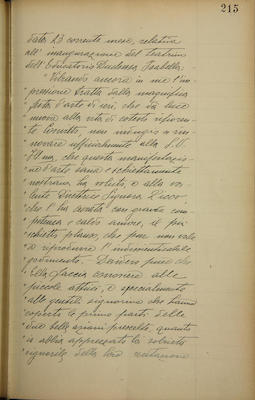 215
data 23 corrente mese, relativa
all'inaugurazione del Teatrino
dell'Educatorio Duchessa Isabella.
"Vibrando ancora in me l'im-
"pressione tratta dalla magnifica
"festa d'arte di ieri, che dà luce
"nuova alla vita di cotesto
non indugio a rin-
"novare ufficialmente alla S. V.
"Ill.ma, che questa manifestazio-
"ne d'arte sana e schiettamente
"nostrana ha voluto, e alla va-
"lente Direttrice Signora
"che l'ha curata con grande com-
"petenza e caldo amore, il più
"schietto plauso, che pur non vale
"a riprodurre l'indimenticabile
"godimento. Desidero pure che
"Ella faccia conoscere alle
"piccole attrici, e specialmente
"alle gentili signorine che hanno
"coperto le prime parti delle
"due belle azioni prescelte, quanto
"io abbia apprezzato la
"signorile della loro recitazione